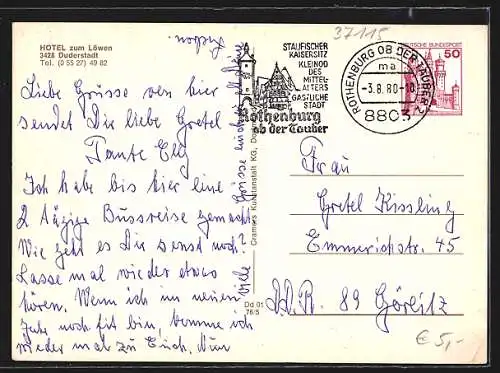 HOTEL zum Löwen
3428 Duderstadt
Tel. (0 55 27) 49 82
Liebe Grüsse von hier
sendet Dir liebe Gretel
Tante Elly
Ich habe bis hier eine
2 tägige Bussreise gemacht
Wie geht es Dir sonst noch?
Lasse mal wieder etwas
hören. Wenn ich im neuen
Jahr noch fit bin, komme ich
wieder mal zu Euch. Nun
viele
Grüsse
37115
STAUFISCHER
KAISERSITZ
KLEINOD
DES
MITTEL-
ALTERS
GASTLICHE
STADT
Rothenburg
ob der Tauber
ROTHENBURG OB DER TAUBER 2
ma
-3.8.80-10
8803
DEUTSCHE BUNDESPOST
50
Dd 01
76/5
Frau
Gretel Kissling
Emmerichstr. 45
D.D.R. 89 Görlitz
€ 5,-